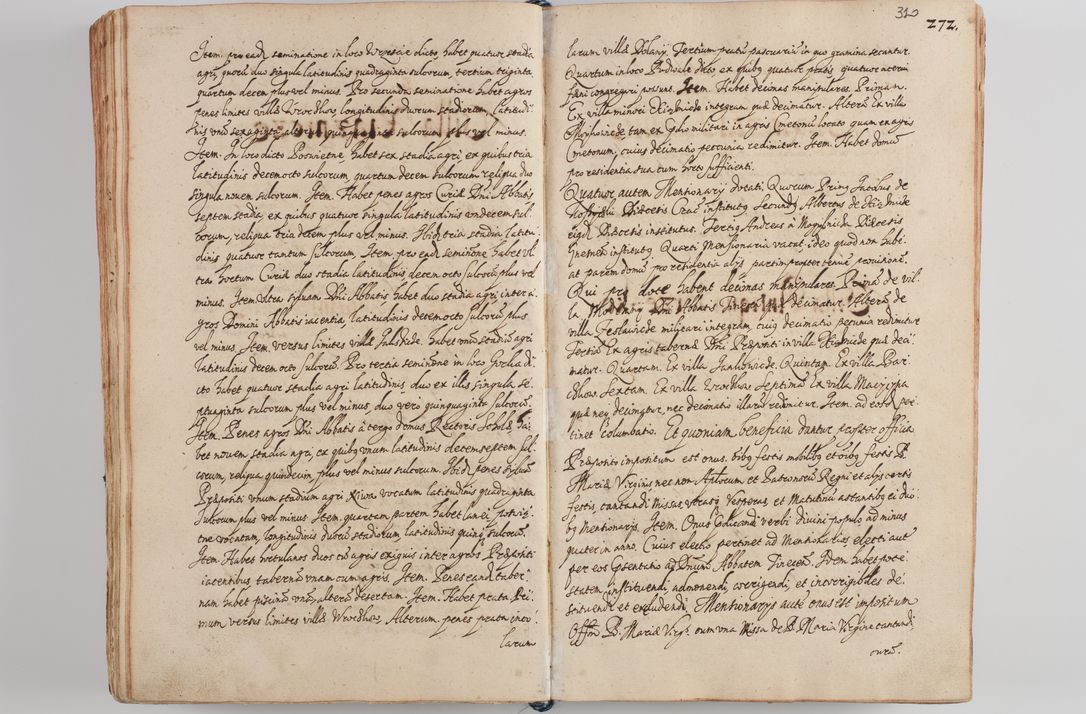 Item. pro ead. seminatione in loco Wrzescie dicto, habet quatuor stadia
agri, quorũ duo singula latitudinis quadraginta sulcorum, tertium triginta,
quartum decem plus vel minus. Pro secunda seminatione habet agros
penes limites villæ Wrocihow longitudinis duorum stadiorum, latitudi
nis unũ sexaginta, alterũ quinquaginta sulcorum plus vel minus.
Item. In loco dicto Poswietne habet sex stadia agri ex quibus tria
latitudinis decem octo sulcorum, quartum decem sulcorum, reliqua duo
singula novem sulcorum. Item. Habet penes agros Curiæ Dni Abbatis
septem stadia, ex quibus quatuor singula latitudinis undecem sul,
corum, reliqua tria decem plus vel minus. Ibid. tria stadia latitu,
dinis quatuor tantum sulcorum. Item pro ead. seminõne habet vl
tra hortum Curiæ duo stadia latitudinis decem octo sulcorũ plus vel
minus. Item ultra sylvam Dni Abbatis habet duo stadia agri inter a,
gros Domini Abbatis iacentia, latitudinis decem octo sulcorũ plus
vel minus. Item. versus limites villæ habet unũ stadiũ agri
latitudinis decem octo sulcorũ. Pro tertia seminõne in loco di
cto habet quatuor stadia agri latitudinis duo ex illis singula se,
ptuaginta sulcorum plus vel minus, duo vero quinquaginta sulcorũ.
Item. Penes agros Dni Abbatis à tergo domus Rectoris Scholæ ha,
bet novem stadia agri, ex quibq unum latitudinis decem septem sul,
corum, reliqua quindecim plus vel minus sulcorum. Ibid. penes sylvam
Præpositi unum stadium agri vocatum latitudinis quadraginta
sulcorum plus vel minus. Item. quartam partem habet lanei
vocatam, longitudinis duorũ stadiorum, latitudinis quinq sulcorũ.
Item. Habet hortulanos duos cũ agris exiguis inter agros Præpositi
iacentibus tabernã unam cum agris. Item. Penes eand. taber,
nam habet piscinã unã, alterã desertam. Item. Habet prata. Pri
mum versus limites villæ Wrocihow. Alterum penes prata inco,
larum
310
272.
larum villæ Dolany. Tertium pratũ pascuariũ in quo gramina secantur.
Quartum in loco dicto ex quibq quatuor pratis quatuor acervi
fæni congregari possunt. Item. Habet decimas manipulares. Primã
Ex villa minori integram quæ decimatur. Alterã Ex villa
tam ex Prædio militari in agris Cmetonũ locato quam ex agris
Cmetonum, cuius decimatio pecunia redimitur. Item. Habet domũ
pro residentia sua cum horto sufficienti.
Quatuor autem Mentionarij dotati. Quorum Primq Jacobus de
Diœcesis Crac: institutq Secundq Albertus de
eiusd. Diœcesis institutus. Tertiq Andreas à Mogylnicza Diœcesis
Gnesnen institutq. Quarti Mensionaria vacat, ideo quod non habe,
at parem domũ pro residentia alijs partim propter tenuẽ provisionẽ.
Qui pro dote habent decimas manipulares. Primã de vil
la Dni Abbatis decimatur. Alterã de
villa integram, cuiq decimatio pecunia redimitur
Tertiã Ex agris tabernæ Dni Præpositi in villa quæ deci,
matur. Quartam. Ex villa Jankowice. Quintam. Ex villa
Sextam. Ex villa Wrocihow. Septimã Ex villa
quæ neq decimatur, nec decimatio illarũ redimitur. Item. ad eosd. per
tinet Columbatio. Et quoniam beneficia dantur propter officia
Præposito impositum est onus. oibq festis mobilibq et oibq festis B.
Mariæ Virginis nec non Aplorum et Patronorũ Regni et alijs certis
festis, cantandi Missas, utrasq Vesperas, et Matutinũ astantibq ei duo
bq Mentionarijs. Item. Onus Prædicandi verbũ divini populo, ad minus
quater in anno. Cuius electio pertinet ad Mentionarios, electi aut
per eos Præsentatio ad Dnum Abbatem Tinecen. Idem habet pote,
statem instituendi, admonendi, corrigendi, et incorrigibiles de,
stituendi, et excludendi. Mentionarijs autẽ onus est impositum
Offm B. Mariæ Virg. cum una Missa de B. Maria Virgine cantand: